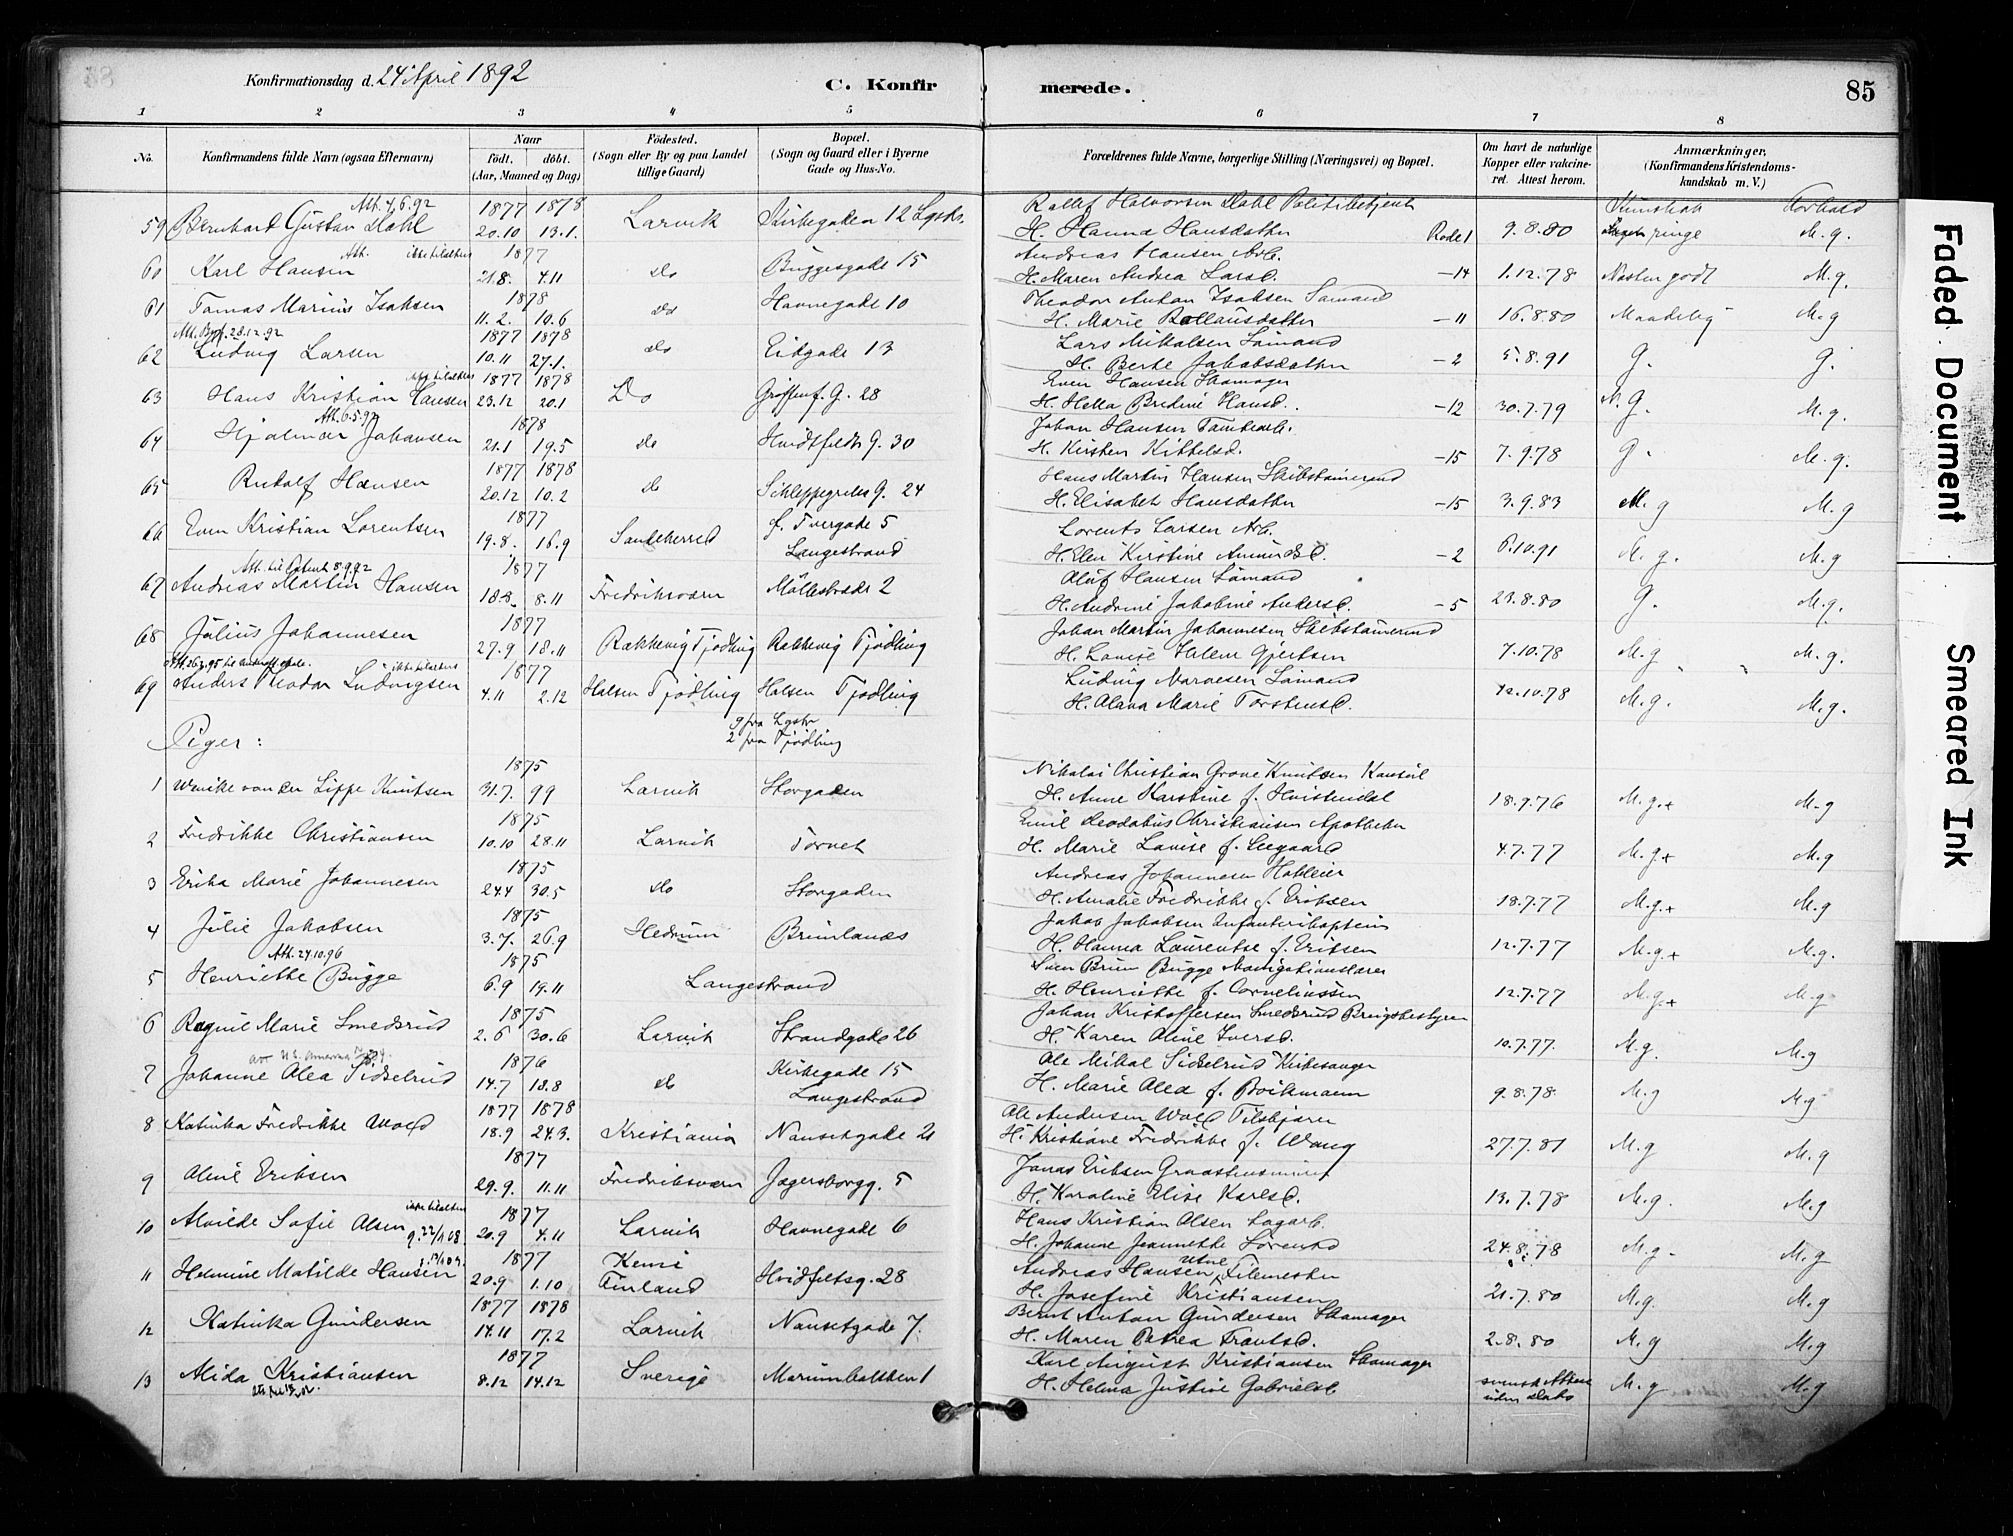 Konfirmationsdag d. 24 April 1892 C. Konfirmerede. 85
1 2 3 4 5 6 7 8
No. Konfirmandens fulde Navn (ogsaa Efternavn) Naar født. døbt. (Aar, Maaned og Dag) Fødested. (Sogn eller By og paa Landet tillige Gaard) Bopæl. (Sogn og Gaard eller i Byerne Gade og Hus-No. Forældrenes fulde Navne, borgerlige Stilling (Næringsvei) og Bopæl. Om havt de naturlige Kopper eller vakcineret. Attest herom. Anmærkninger, (Konfirmandens Kristendomskundskab m. V.)
Kundskab Forhold
Att. 4.6.92 1877 1878 Rollef Halvorsen Dahl Politibetjent
59 Bernhart Gustav Dahl 20.10 13.1. Larvik Kirkegaden 12 Lgstr. H. Hanna Hansdatter Rode 1 9.8.80 ringe M.g.
Att. ikke tilaltens 1877 Andreas Hansen Arb.
60 Karl Hansen 21.8. 4.11 do Buggesgade 15 H. Maren Andrea Larsd. -14 1.12.78 Næsten godt M.g.
1878 Theodor Anton Isaksen Sømand
61 Tomas Marius Isaksen 11.2. 10.6 do Havnegade 10 H. Marie Rollausdatter -11 16.8.80 Maadelig M.g
28.12.92 1877 1878 Lars Mikalsen Sømand
62 Ludvig Larsen 10.11 27.1. do Eidgade 13 H. Berte Jakobsdatter -2 5.8.91 G. G.
ikke tilaltens 1877 1878 Even Hansen Skomager
63 Hans Kristian Hansen 23.12 20.1 Do Griffenf. G. 28 H. Hella Bredine Hansd. -12 30.7.79 N.G. M.g.
Att. 6.5.92 1878 Johan Hansen
64 Hjalmar Johansen 21.1 19.5 do Hvidtfeldts G. 30 H. Kirsten Kittelsd. -15 7.9.78 G. M.g.
1877 1878 Hans Martin Hansen Skibstømmermd
65 Rudolf Hansen 20.12 10.2 do Schleppegrels G. 24 H. Elisabeth Hansdatter -15 3.9.83 M.g M.g
1877 f. Tvergade 5 Lorents Larsen Arb.
66 Even Kristian Lorentsen 19.8. 16.9 Sandeherred Langestrand H. Elen Kirstine Amundsd. -2 6.10.91 M.g. M.g
8.9.92 1877 Oluf Hansen Sømand
67 Andreas Martin Hansen 18.8. 8.11 Fredriksværn Møllestræde 2 H. Andrine Jakobine Andersd. -5 23.8.80 G. M.g.
1877 Johan Martin Johannesen Skibstømmermd
68 Julius Johannesen 27.9 18.11 Rækkevig Tjødling Rækkevig Tjødling H. Lovise Helene Gjertsen 7.10.78 M.g M.g.
ikke tilaltens 1877 Ludvig Narvesen Sømand
69 Anders Theodor Ludvigsen 4.11 2.12 Halsen Tjødling Halsen Tjødling H. Alava Marie Torstensd. 12.10.78 M.g. M.g.
9 fra Lgstr
Piger: 2 fra Tjødling
1875 Nikolai Christian Grove Knutsen Konsul
1 Wenike von der Lippe Knutsen 31.7. 9.9 Larvik Storgaden H. Anne Karstine f. Hvistendal 18.9.76 M.g.+ M.g
1875 Emil Deodatus Christiansen Apotheker
2 Fredrikke Christiansen 10.10 28.11 Larvik Torvet H. Marie Lovise f. Seegaard 4.7.77 M.g.+ M.g
1875 Andreas Johannesen Hotleier
3 Erika Marie Johannesen 24.4 30.5 do Storgaden H. Amalie Fredrikke f. Eriksen 18.7.77 M.g.+ M.g
1875 Jakob Jakobsen Infanterikaptein
4 Julie Jakobsen 3.7. 26.9 Hedrum Brunlanes H. Hanna Laurentse f. Eriksen 12.7.77 M.g.+ M.g.
Att. 24.10.96 1875 Sven Brun Bugge Navigationslærer
5 Henriette Bugge 6.9 19.11 Langestrand H. Henriette f. Corneliussen 12.7.77 M.g+ M.g
1875 Johan Kristoffersen Smedsrud Brugsbestyrer
6 Ragnil Marie Smedsrud 2.6 30.6 Larvik Strandgade 26 H. Karen Oline Iversd. 10.7.77. M.g. M.g
1876 Kirkegade 15 Ole Mikal Sidselrud Kirkesanger
7 Johanne Olea Sidselrud 14.7 13.8 do Langestrand H. Marie Olea f. Boikmann 9.8.78. M.g M.g
1877 1878 Ole Andersen Wold
8 Katinka Fredrikke Wold 18.9 24.3. Kristiania Nansetgade 21 H. Kristiane Fredrikke f. Wang 27.7.81 M.g M.g
1877 Jonas Eriksen Graastensminer
9 Oline Eriksen 29.9. 11.11 Fredriksværn Jægersborgg. 5 H. Karoline Elise Karlsd. 13.7.78 M.g. M.g
ikke tilaltens 1877 Hans Kristian Olsen
10 Alvilde Sofie Olsen 20.9 4.11 Larvik Havnegade 6 H. Johanne Jeannette Sørensd 24.8.78 M.g. M.g
1877 Kemi Andreas Hansen Utne Filemester
11 Hermine Matilde Hansen 20.9 1.10 Finland Hvidfeltsg. 28 H. Josefine Kristiansen 21.7.80 M.g. M.g
1877 1878 Bernt Anton Gundersen Skomager
12 Katinka Gundersen 14.11 17.2 Larvik Nansetgade 7. H. Maren Petrea Frantsd. 2.8.80 M.g M.g
1877 Karl August Kristiansen Skomager
13 Alida Kristiansen 8.12 14.12 Sverige Marumbakken 1 H. Helena Justine Gabrielsd svensk Attest uden Dato M.g M.g
Faded Document
Smeared Ink